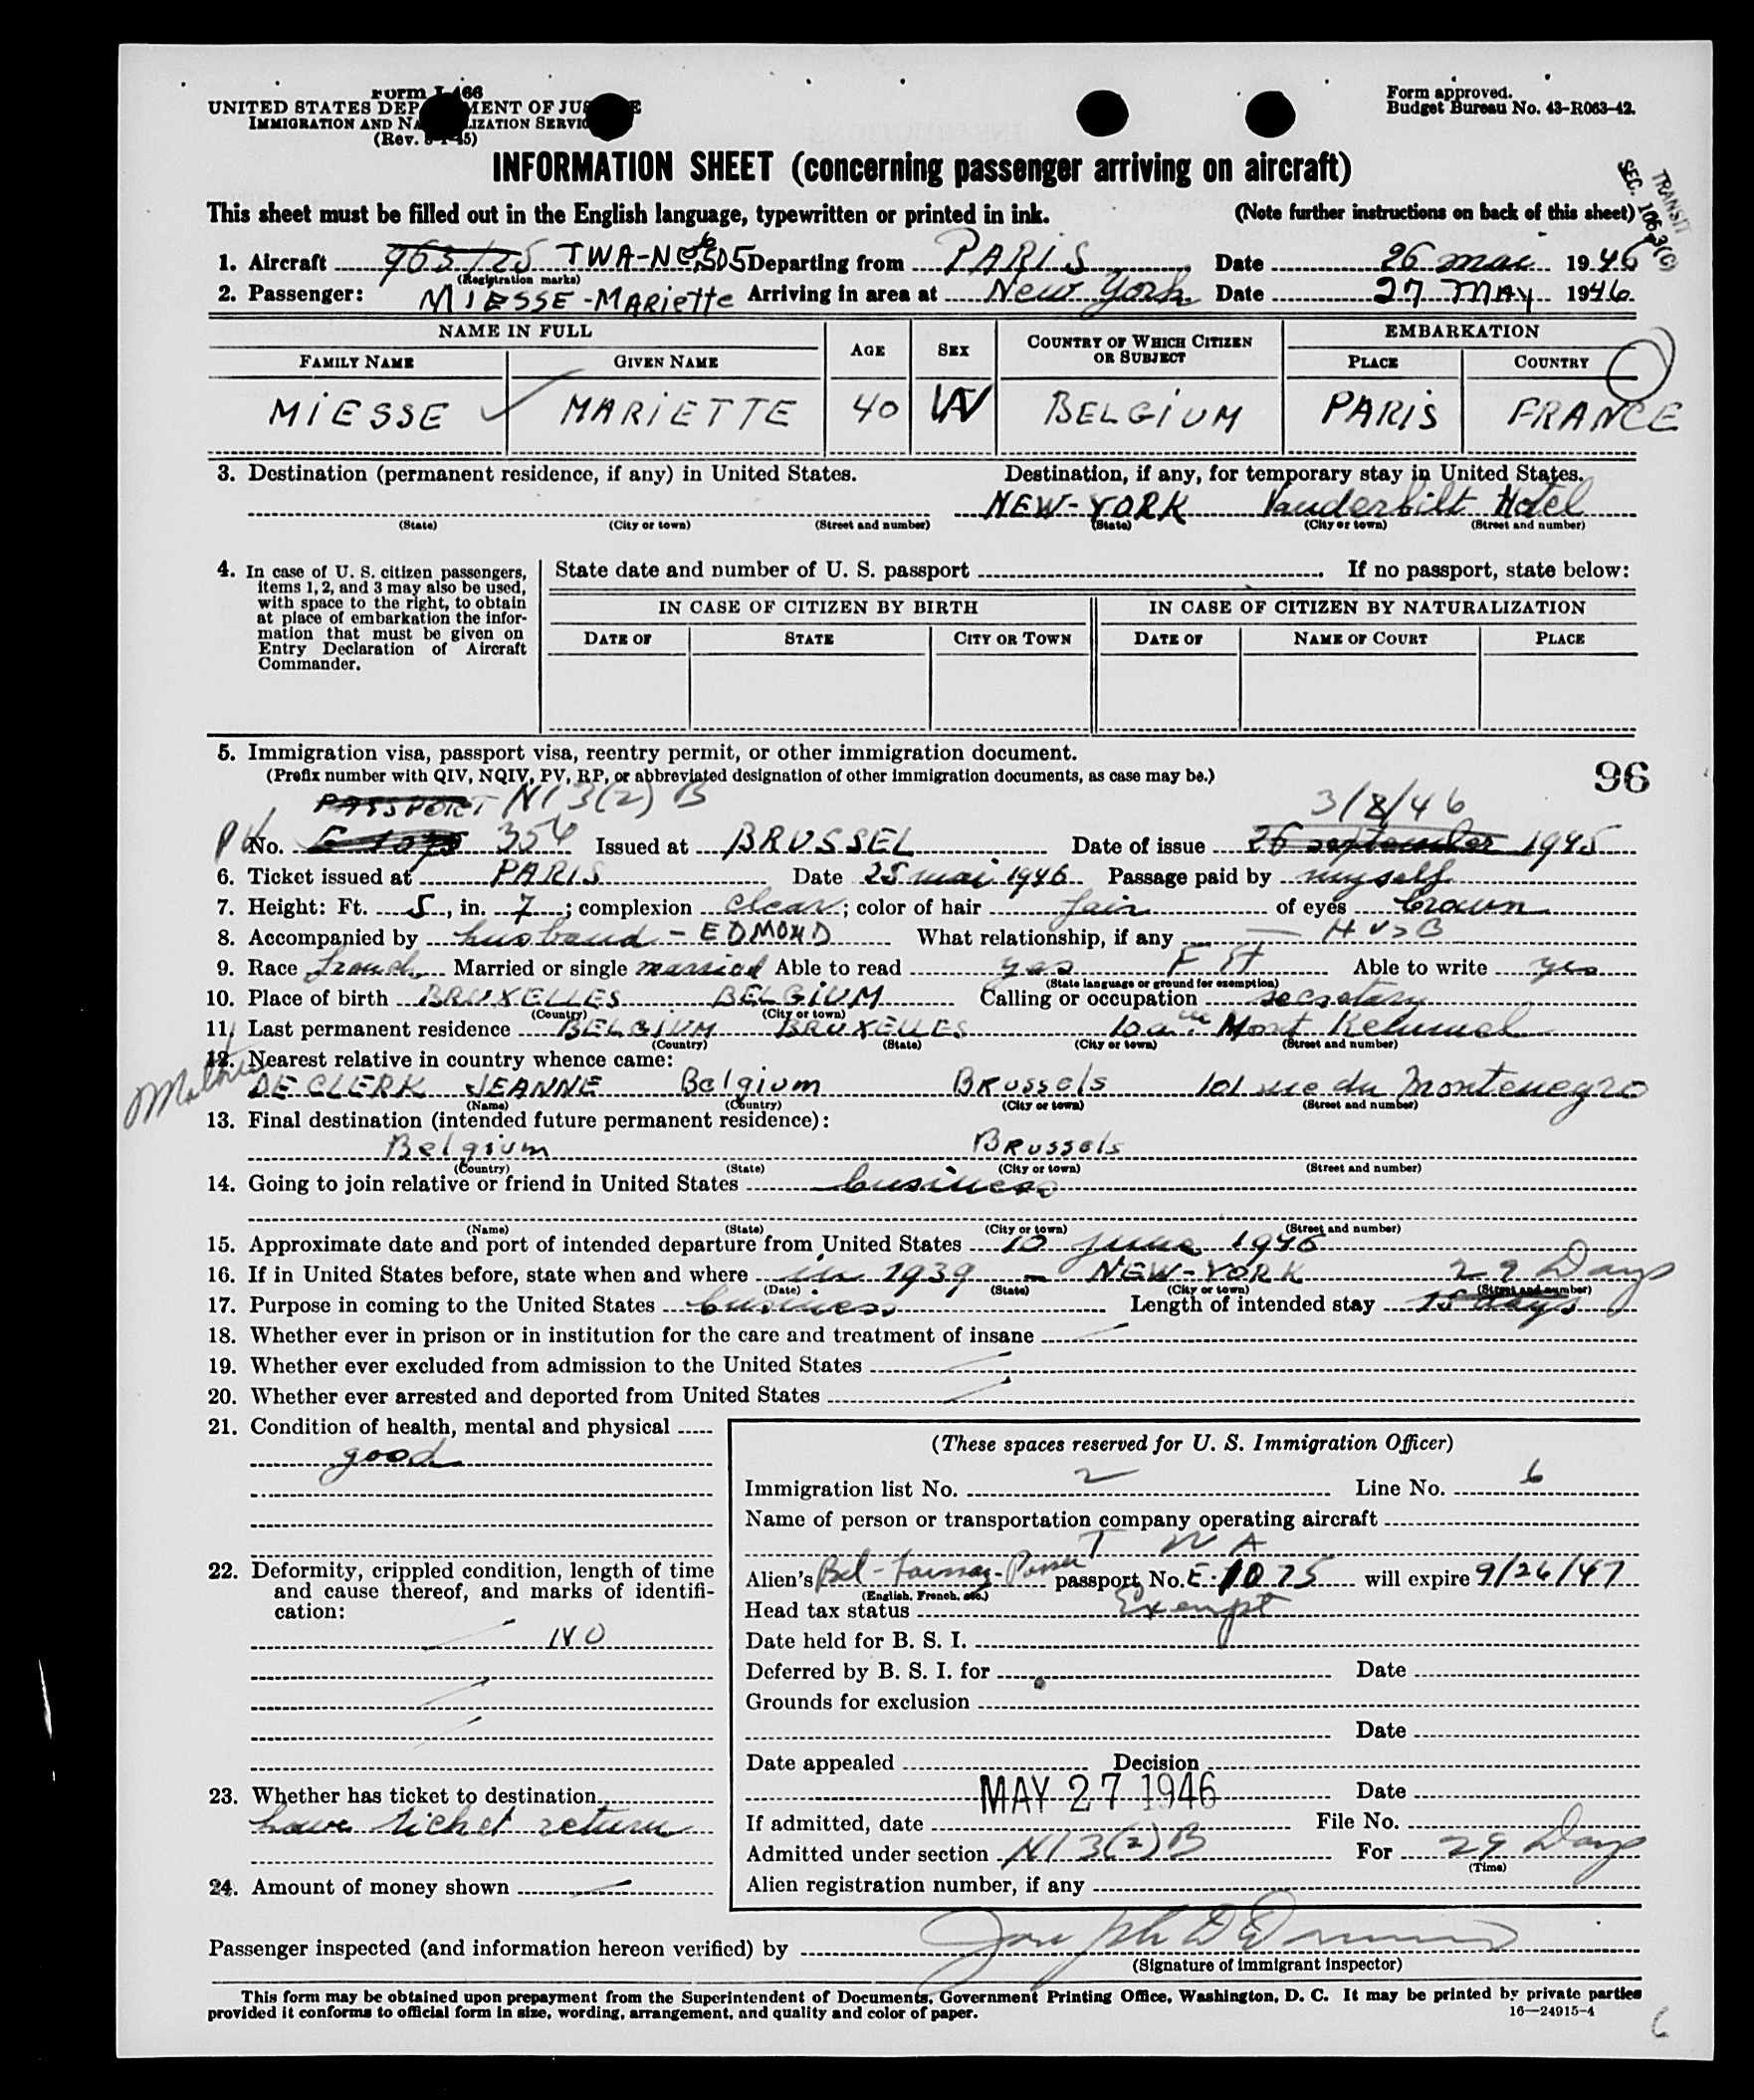 Form I-466
UNITED STATES DEP MENT OF JUS E
IMMIGRATION AND NA IZATION SERVIC
(Rev. 45)
Form approved.
Budget Bureau No. 43-R063-42.
INFORMATION SHEET (concerning passenger arriving on aircraft)
TRANSIT
SEC. 106.3(c)
This sheet must be filled out in the English language, typewritten or printed in ink. (Note further instructions on back of this sheet)
1. Aircraft TWA-No 505 Departing from PARIS Date 26 mai 1946
(Registration marks)
2. Passenger: MIESSE-MARIETTE Arriving in area at New York Date 27 MAY 1946
NAME IN FULL AGE SEX COUNTRY OF WHICH CITIZEN OR SUBJECT EMBARKATION
FAMILY NAME GIVEN NAME PLACE COUNTRY
MIESSE MARIETTE 40 W BELGIUM PARIS FRANCE
3. Destination (permanent residence, if any) in United States. Destination, if any, for temporary stay in United States.
NEW-YORK Vanderbilt Hotel
(State) (City or town) (Street and number) (State) (City or town) (Street and number)
4. In case of U. S. citizen passengers, items 1, 2, and 3 may also be used, with space to the right, to obtain at place of embarkation the information that must be given on Entry Declaration of Aircraft Commander.
State date and number of U. S. passport If no passport, state below:
IN CASE OF CITIZEN BY BIRTH IN CASE OF CITIZEN BY NATURALIZATION
DATE OF STATE CITY OR TOWN DATE OF NAME OF COURT PLACE
5. Immigration visa, passport visa, reentry permit, or other immigration document.
(Prefix number with QIV, NQIV, PV, RP, or abbreviated designation of other immigration documents, as case may be.)
96
PASSPORT NI 3(2) B 3/8/46
PV No. 354 Issued at BRUSSEL Date of issue 26 september 1945
6. Ticket issued at PARIS Date 25 mai 1946 Passage paid by myself
7. Height: Ft. 5, in. 7; complexion clear; color of hair fair of eyes brown
8. Accompanied by husband - EDMOND What relationship, if any HUSB
9. Race french Married or single married Able to read yes Able to write yes
(State language or ground for exemption)
10. Place of birth BRUXELLES BELGIUM Calling or occupation secretary
(Country) (City or town)
11. Last permanent residence BELGIUM BRUXELLES Mont
(Country) (State) (City or town) (Street and number)
12. Nearest relative in country whence came:
Mother
DE CLERK JEANNE Belgium Brussels 101 rue du Montenegro
(Name) (Country) (City or town) (Street and number)
13. Final destination (intended future permanent residence):
Belgium Brussels
(Country) (State) (City or town) (Street and number)
14. Going to join relative or friend in United States business
(Name) (State) (City or town) (Street and number)
15. Approximate date and port of intended departure from United States 10 june 1946
16. If in United States before, state when and where in 1939 - NEW-YORK 29 Days
(Date) (State) (City or town) (Street and number)
17. Purpose in coming to the United States business Length of intended stay 15 days
18. Whether ever in prison or in institution for the care and treatment of insane
19. Whether ever excluded from admission to the United States
20. Whether ever arrested and deported from United States
21. Condition of health, mental and physical
good
22. Deformity, crippled condition, length of time and cause thereof, and marks of identification:
NO
23. Whether has ticket to destination
have ticket return
24. Amount of money shown
(These spaces reserved for U. S. Immigration Officer)
Immigration list No. 2 Line No. 6
Name of person or transportation company operating aircraft
T W A
Alien's passport No. E-1075 will expire 9/26/47
(English, French, etc.)
Head tax status Exempt
Date held for B. S. I.
Deferred by B. S. I. for Date
Grounds for exclusion
Date
Date appealed Decision
MAY 27 1946 Date
If admitted, date File No.
Admitted under section NI 3(2) B For 29 Days
(Time)
Alien registration number, if any
Passenger inspected (and information hereon verified) by
(Signature of immigrant inspector)
This form may be obtained upon prepayment from the Superintendent of Documents, Government Printing Office, Washington, D. C. It may be printed by private parties
provided it conforms to official form in size, wording, arrangement, and quality and color of paper. 16—24915-4
6